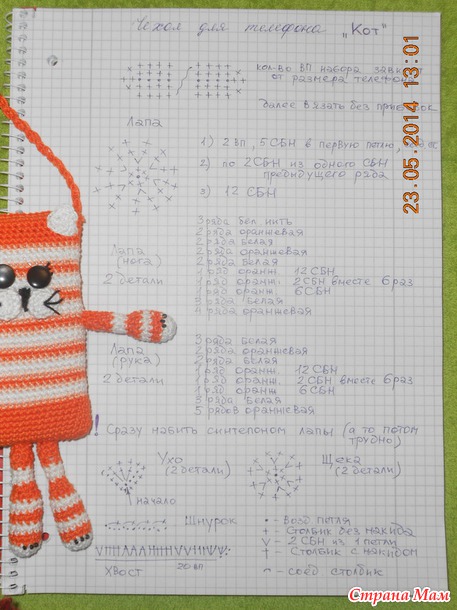 Чехол для телефона „Кот"
кол-во ВП набора
от размера телефона
далее вязать без
Лапа
1) 2 ВП, 5 СБН в первую петлю
2) по 2 СБН из одного СБН
предыдущего ряда
3) 12 СБН
Лапа
(нога)
2 детали
3 ряда бел. нить
2 ряда оранжевая
2 ряда белая
2 ряда оранжевая
2 ряда белая
1 ряд оранж. 12 СБН
1 ряд оранж. 2 СБН вместе 6 раз
1 ряд оранж 6 СБН
ряда белая
4 ряда оранжевая
Лапа
(рука)
2 детали
3 ряда белая
2 ряда оранжевая
2 ряда белая
1 ряд оранж. 12 СБН
1 ряд оранж. 2 СБН вместе 6 раз
1 ряд оранж 6 СБН
3 ряда белая
5 рядов оранжевая
! Сразу набить синтепоном лапы (а то потом
трудно)
Ухо
(2 детали)
начало
Щека
(2 детали)
Шнурок
ХВОСТ
20 ВП
• - Возд петля
+ - Столбик без накида
V - 2 СБН из 1 петли
† - Столбик с накидом
⌒ - соед. столбик
23.05.2014 13:01
Страна Мам